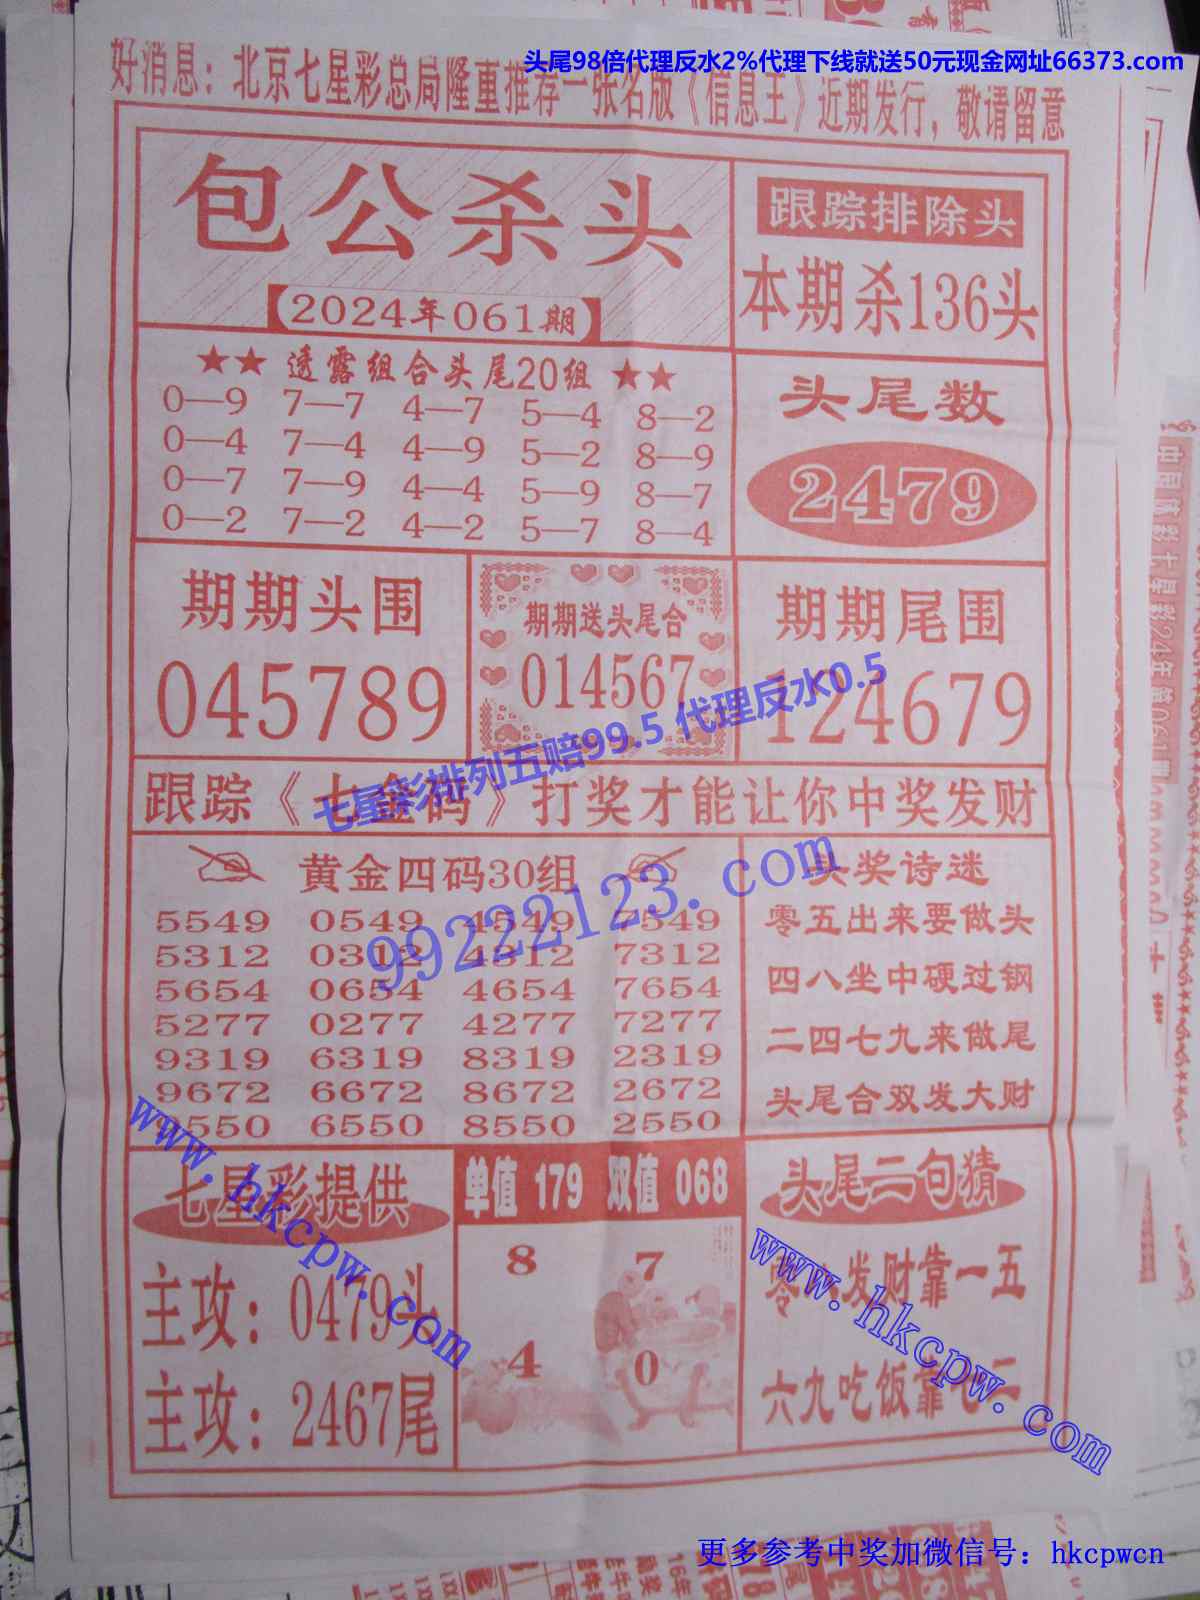 头尾98倍代理反水2%代理下线就送50元现金网址66373.com
好消息：北京七星彩总局隆重推荐一张名版《信息王》近期发行，敬请留意
包公杀头
【2024年061期】
跟踪排除头
本期杀136头
★★ 透露组合头尾20组 ★★
0—9 7—7 4—7 5—4 8—2
0—4 7—4 4—9 5—2 8—9
0—7 7—9 4—4 5—9 8—7
0—2 7—2 4—2 5—7 8—4
头尾数
2479
期期头围
045789
期期送头尾合
014567
期期尾围
124679
七星彩排列五赔99.5 代理反水0.5
跟踪《七金码》打奖才能让你中奖发财
黄金四码30组
5549 0549 4549 7549
5312 0312 4312 7312
5654 0654 4654 7654
5277 0277 4277 7277
9319 6319 8319 2319
9672 6672 8672 2672
9550 6550 8550 2550
99222123.com
头奖诗迷
零五出来要做头
四八坐中硬过钢
二四七九来做尾
头尾合双发大财
七星彩提供
主攻：0479头
主攻：2467尾
www.hkcpw.com
单值 179 双值 068
8 7
4 0
头尾二句猜
零八发财靠一五
六九吃饭靠七二
www.hkcpw.com
中国体彩七星彩24年第061期
更多参考中奖加微信号：hkcpwcn